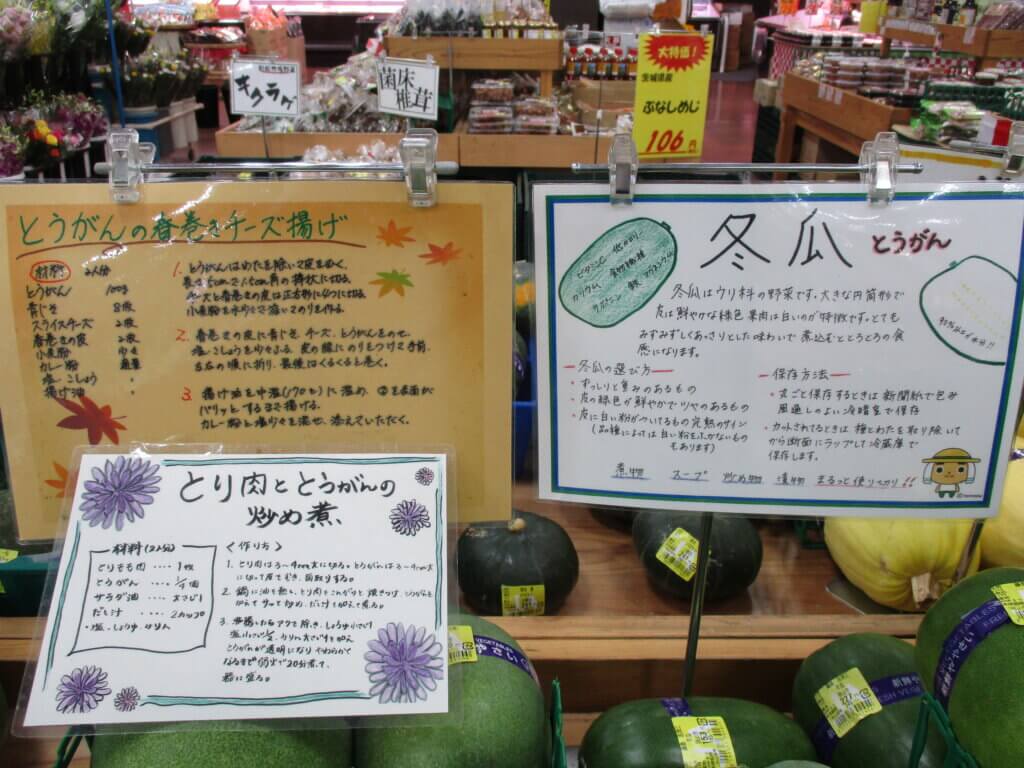 キクラゲ
菌床
椎茸
大特価！
茨城県産
ぶなしめじ
106円
とうがんの春巻きチーズ揚げ
材料 2人分
とうがん 100g
青じそ 8枚
スライスチーズ 2枚
春巻きの皮 2枚
小麦粉 少々
カレー粉 適量
塩、こしょう 〃
揚げ油 〃
1. とうがんはわたを除いて皮をむく。
小麦粉を水少々で溶いてのりを作る。
2. 春巻きの皮に青じそ、チーズ、とうがんをのせ、
塩、こしょうを少々ふる。皮の縁にのりをつけて手前、
左右の順に折り、最後はくるくると巻く。
3. 揚げ油を中温(170℃)に温め、②を表面が
パリッとするまで揚げる。
カレー粉と塩少々を混ぜ、添えていただく。
とり肉ととうがんの
炒め煮、
材料(2人分)
とりもも肉 ‥‥ 1枚
とうがん ‥‥ 1/4個
サラダ油 ‥‥ 大さじ1
だし汁 ‥‥ 2カップ
・塩、しょうゆ、みりん
〈作り方〉
1. とり肉は3〜4cm大に切る。とうがんは3〜4cm大
に切って厚で皮をむき、面取りする。
2. 鍋に油を熱し、とり肉をこんがりと焼きつけ、とうがんを
加えてサッと炒め、だし汁を加えて煮る。
3. 沸騰したらアクを除き、しょうゆ小さじ1
塩小さじ1/2、みりん大さじ1を加え
とうがんが透明になりやわらかく
なるまで弱火で20分煮て、
器に盛る。
冬瓜 とうがん
低カロリー
ビタミンC
食物繊維
カリウム
マグネシウム
サポニン
鉄
95%以上が水分!!
冬瓜はウリ科の野菜です。大きな円筒形で
皮は鮮やかな緑色、果肉は白いのが特徴です。とても
みずみずしくあっさりとした味わいで煮込むととろとろの食
感になります。
ー冬瓜の選び方ー
・ずっしりと重みのあるもの
・皮の緑色が鮮やかでツヤのあるもの
・皮に白い粉がついてるもの完熟のサイン
(品種によっては白い粉をふかないもの
もあります)
ー保存方法ー
・丸ごと保存するときは新聞紙で包み
風通しのよい冷暗室で保存
・カットされてるときは種とわたを取り除いて
から断面にラップして冷蔵庫で
保存します。
煮物 スープ 炒め物 漬物 まるっと使い切り!!